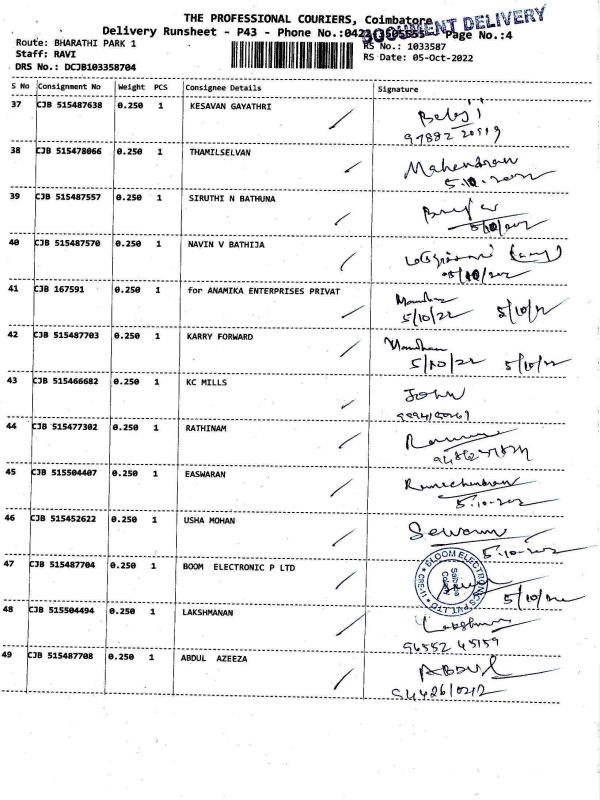 THE PROFESSIONAL COURIERS, Coimbatore
DOCUMENT DELIVERY
Delivery Runsheet - P43 - Phone No.:0422 3505555 Page No.:4
Route: BHARATHI PARK 1 RS No.: 1033587
Staff: RAVI RS Date: 05-Oct-2022
DRS No.: DCJB103358704
S No Consignment No Weight PCS Consignee Details Signature
37 CJB 515487638 0.250 1 KESAVAN GAYATHRI
38 CJB 515478066 0.250 1 THAMILSELVAN Mahendran
5.10.2022
39 CJB 515487557 0.250 1 SIRUTHI N BATHUNA
5/10/202
40 CJB 515487570 0.250 1 NAVIN V BATHIJA
05/10/202
41 CJB 167591 0.250 1 for ANAMIKA ENTERPRISES PRIVAT
5/10/22 5/10/22
42 CJB 515487703 0.250 1 KARRY FORWARD
5/10/22 5/10/22
43 CJB 515466682 0.250 1 KC MILLS John
44 CJB 515477302 0.250 1 RATHINAM
45 CJB 515504407 0.250 1 EASWARAN Ramachandran
5.10.202
46 CJB 515452622 0.250 1 USHA MOHAN
5.10.202
47 CJB 515487704 0.250 1 BOOM ELECTRONIC P LTD BLOOM ELECTRONICS PVT. LTD
5/10/22
48 CJB 515504494 0.250 1 LAKSHMANAN
96552 45159
49 CJB 515487708 0.250 1 ABDUL AZEEZA ABDUL